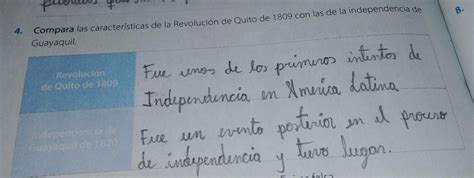 4. Compara las características de la Revolución de Quito de 1809 con las de la independencia de
Guayaquil.
8-
Revolución
de Quito de 1809
Fue unos de los primeros intentos de
Independencia en America Latina
Independencia de
Guayaquil de 1820
Fue un evento posterior en el proceso
de independencia y tuvo lugar.